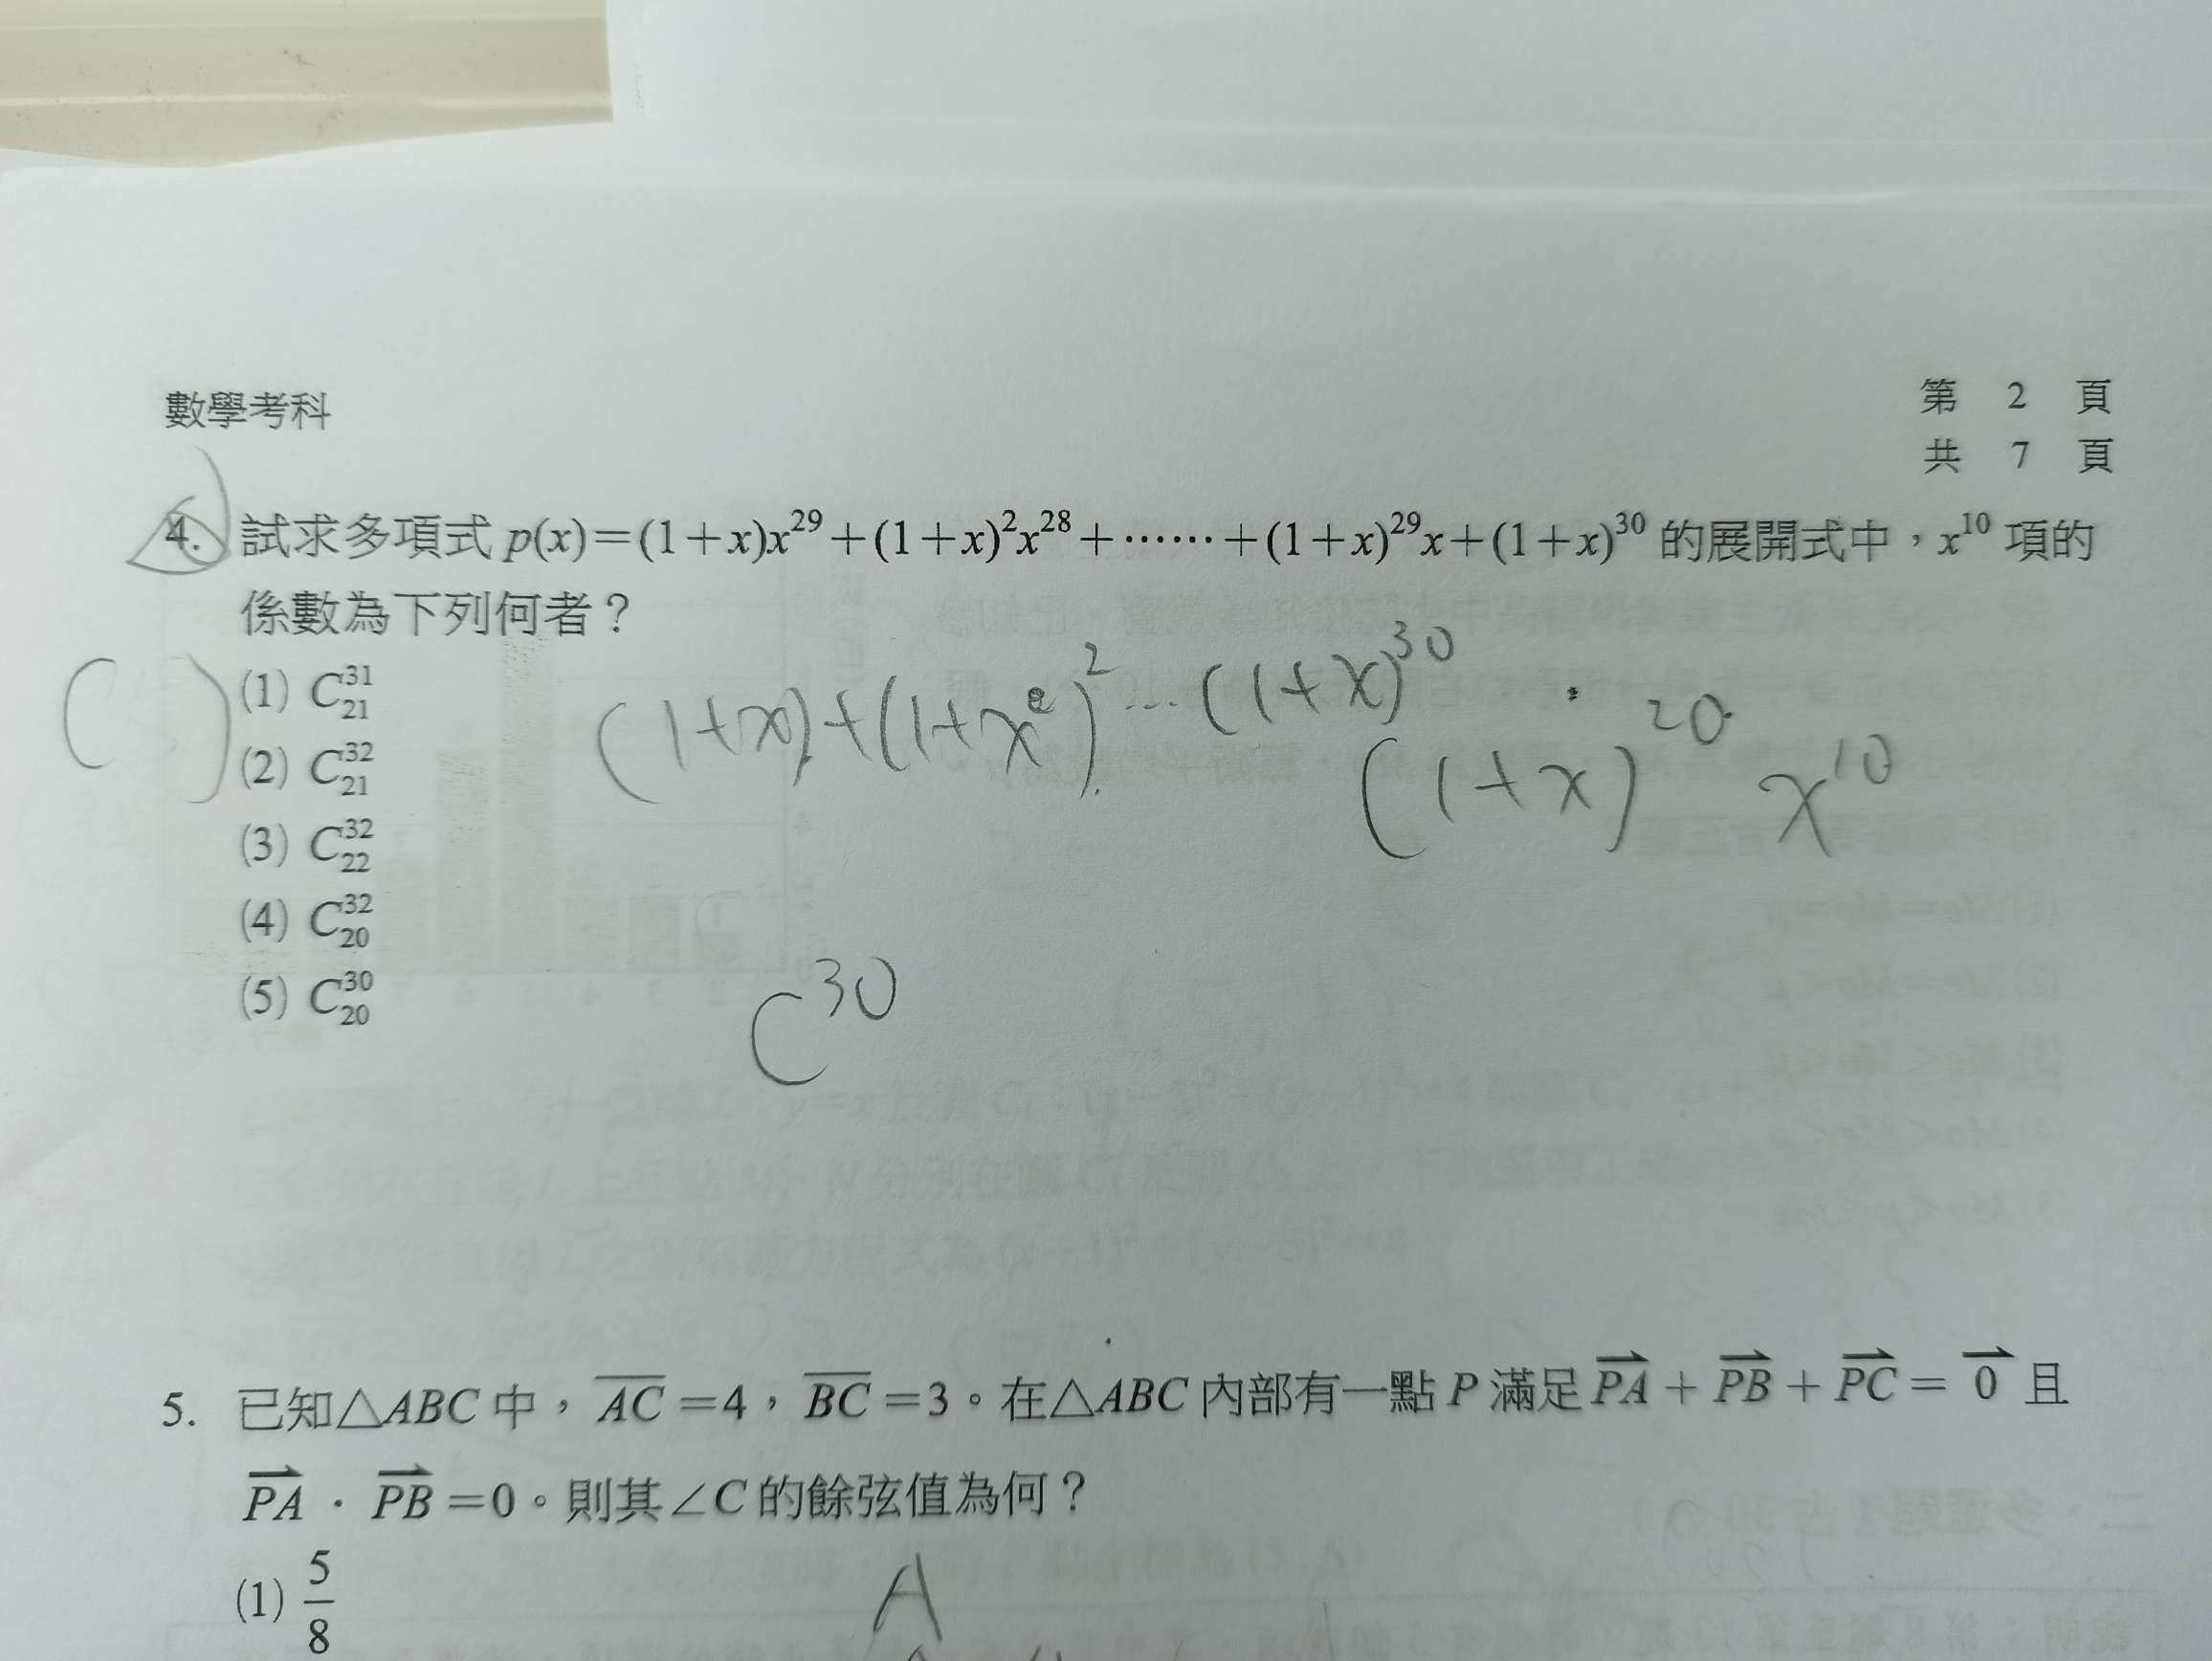 數學考科
第 2 頁
共 7 頁
4. 試求多項式 p(x)=(1+x)x²⁹+(1+x)²x²⁸+⋯⋯+(1+x)²⁹x+(1+x)³⁰ 的展開式中，x¹⁰ 項的
係數為下列何者？
(1) C³¹₂₁
(2) C³²₂₁
(3) C³²₂₂
(4) C³²₂₀
(5) C³⁰₂₀
(1+x)+(1+x²)²...(1+x)³⁰
(1+x)²⁰ x¹⁰
C³⁰
5. 已知△ABC 中，A͞C͞=4，B͞C͞=3。在△ABC 內部有一點 P 滿足 P⃗A⃗+P⃗B⃗+P⃗C⃗=0⃗ 且
P⃗A⃗·P⃗B⃗=0。則其∠C 的餘弦值為何？
(1) 5/8
A